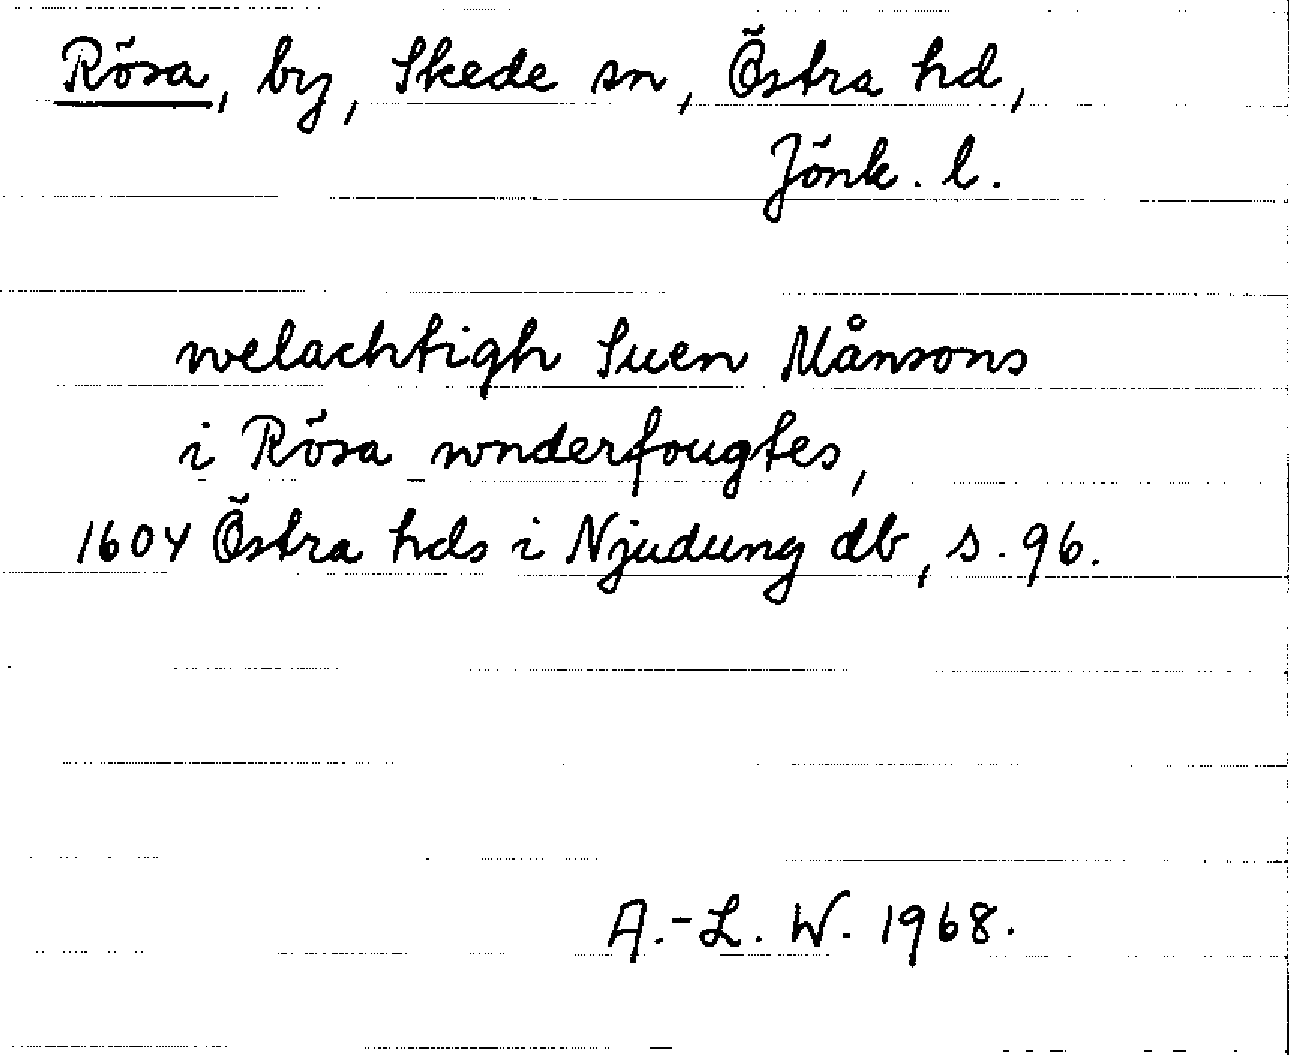 Rösa, by, Skede sn, Östra hd,
Jönk. l.
welachtigh Suen Månsons
i Rösa wnderfougtes,
1604 Östra hds i Njudung db, s. 96.
A.-L. W. 1968.